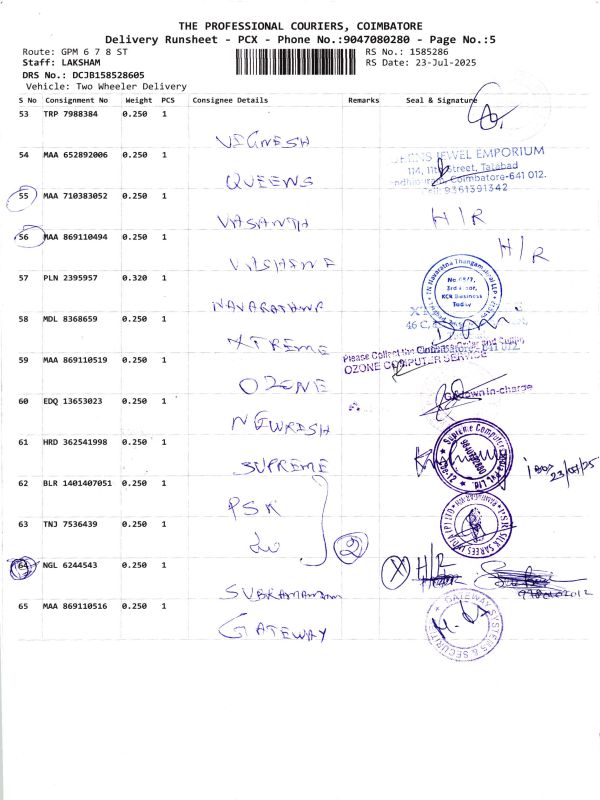 THE PROFESSIONAL COURIERS, COIMBATORE
Delivery Runsheet - PCX - Phone No.:9047080280 - Page No.:5
Route: GPM 6 7 8 ST
RS No.: 1585286
Staff: LAKSHAM
RS Date: 23-Jul-2025
DRS No.: DCJB158528605
Vehicle: Two Wheeler Delivery
S No Consignment No Weight PCS Consignee Details Remarks Seal & Signature
53 TRP 7988384 0.250 1
VIGNESH
54 MAA 652892006 0.250 1
JEWEL EMPORIUM
114, 11th Street, Tatabad
Coimbatore-641 012.
Cell: 9361391342
QUEENS
55 MAA 710383052 0.250 1
VASANTH
H/R
56 MAA 869110494 0.250 1
H/R
57 PLN 2395957 0.320 1
No 68/7,
3rd Floor,
KCR Business
NAVARATHNA
58 MDL 8368659 0.250 1
46 C,
XTREME
59 MAA 869110519 0.250 1
Please Collect the
OZONE COMPUTER SERVICE
OZONE
60 EDQ 13653023 0.250 1
in-charge
61 HRD 362541998 0.250 1
Supreme Computer
SUPREME
23/07/25
62 BLR 1401407051 0.250 1
PSR
63 TNJ 7536439 0.250 1
P.S.R SILK SAREES INDIA (P) LTD
2
64 NGL 6244543 0.250 1
H/R
SUBRAMANIAM
65 MAA 869110516 0.250 1
GATEWAY SYSTEMS & SECURITIES
GATEWAY